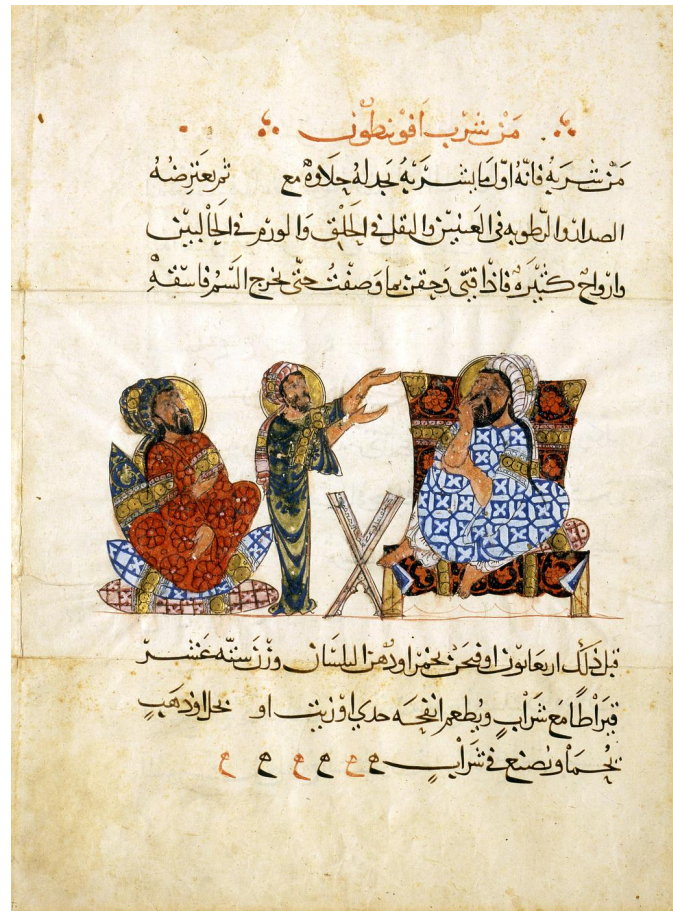 مَنْ شرب افونيطون
مَنْ شَرِبَهُ فانّهُ اوّل مَا يشرَبهُ يجد لهُ حلَاوهْ مع ثم يعترضهُ
الصداع والرطوبه فى العَينَين والثقل فى الحلق وَالورم فى الحالبين
وارواح كثيرهْ فاذا قيى وَحقن بما وَصَفتُ حتّى يخرج السّم فاسقهْ
قبل ذلك او بخمر او دهن البلسان وزن ستّه عشر
قيرَاطًا مَع شرابٍ ويُطعم انفحَه جدي او زيت او بخل او
ويصنع فى شرَابٍ